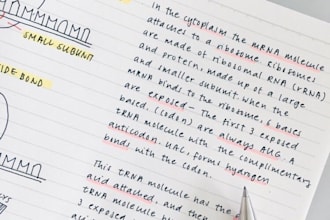 SMALL SUBUNIT
IDE BOND
In the cytoplasm the mRNA molecule
attaches to a ribosome. Ribosomes
are made of ribosomal RNA (rRNA)
and protein, made up of a large
and smaller subunit. When the
mRNA binds to the ribosome, 6 bases
are exposed - The first 3 exposed
bases (codon) are always AUG. A
tRNA molecule with the complimentary
anticodon, UAC, forms hydrogen
binds with the codon.
This tRNA molecule has the
acid attached, and then
tRNA molecule
3 exposed